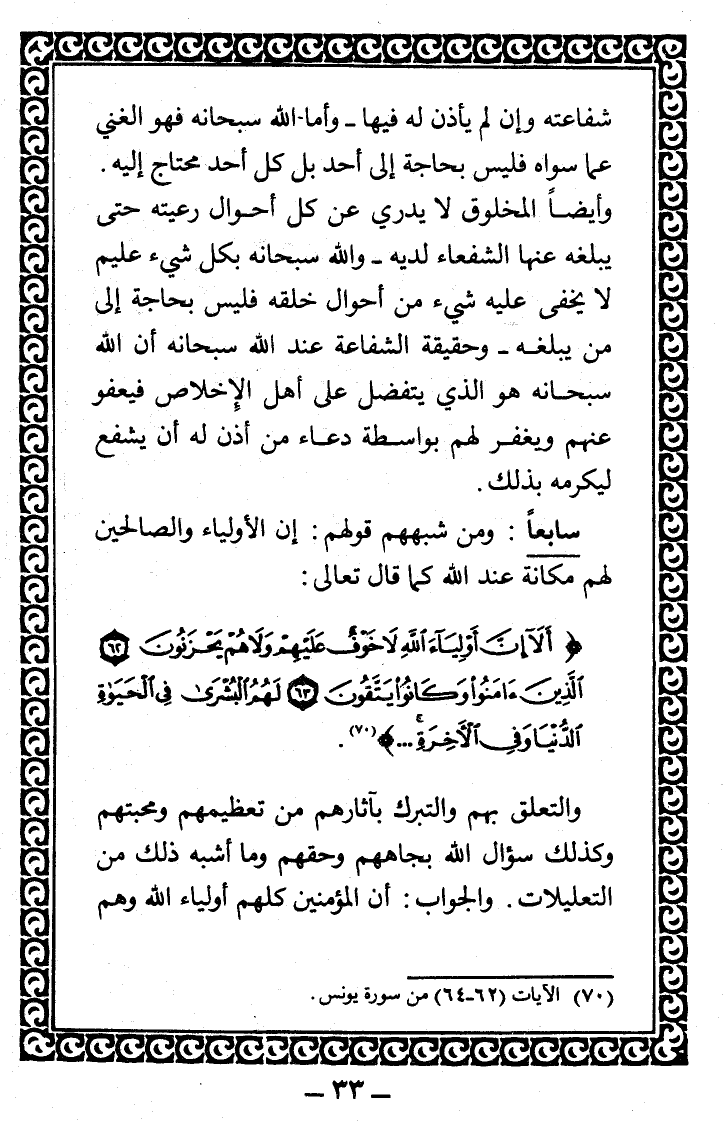 شفاعته وإن لم يأذن له فيها ـ وأما الله سبحانه فهو الغني
عما سواه فليس بحاجة إلى أحد بل كل أحد محتاج إليه .
وأيضـاً المخلوق لا يدري عن كل أحـوال رعيته حتى
يبلغه عنها الشفعاء لديه ـ والله سبحانه بكل شيء عليم
لا يخفى عليه شيء من أحوال خلقه فليس بحاجة إلى
من يبلغـه ـ وحقيقة الشفاعة عند الله سبحانه أن الله
سبحـانه هو الذي يتفضل على أهل الإخلاص فيعفو
عنهم ويغفـر لهم بواسطة دعـاء من أذن له أن يشفع
ليكرمه بذلك .
سابعاً : ومن شبههم قولهم : إن الأولياء والصالحين
لهم مكانة عند الله كما قال تعالى :
﴿ أَلَآ إِنَّ أَوْلِيَآءَ ٱللَّهِ لَا خَوْفٌ عَلَيْهِمْ وَلَا هُمْ يَحْزَنُونَ ٦٢
ٱلَّذِينَ ءَامَنُوا۟ وَكَانُوا۟ يَتَّقُونَ ٦٣ لَهُمُ ٱلْبُشْرَىٰ فِى ٱلْحَيَوٰةِ
ٱلدُّنْيَا وَفِى ٱلْءَاخِرَةِ ۚ ... ﴾ (٧٠) .
والتعلق بهم والتبرك بآثارهم من تعظيمهم ومحبتهم
وكذلك سؤال الله بجاههم وحقهم وما أشبه ذلك من
التعليلات . والجواب : أن المؤمنين كلهم أولياء الله وهم
(٧٠) الآيات (٦٢-٦٤) من سورة يونس .
ـ ٣٣ ـ